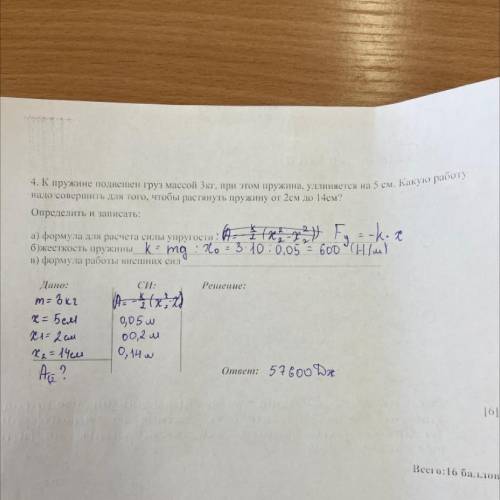 4. К пружине подвешен груз массой 3кг, при этом пружина, удлиняется на 5 см. Какую работу
надо совершить для того, чтобы растянуть пружину от 2см до 14см?
Определить и записать:
а) формула для расчета силы упругости : (A = -k/2 (x₂² - x₂²)) Fу = -k · x
б)жесткость пружины k = mg : x₀ = 3·10 : 0,05 = 600 (Н/м)
в) формула работы внешних сил
Дано: СИ: Решение:
m = 3кг
x = 5см 0,05 м
x1 = 2см 00,2 м
x2 = 14см 0,14 м
?
Ответ: 57600 Дж
[6]
Всего:16 баллов